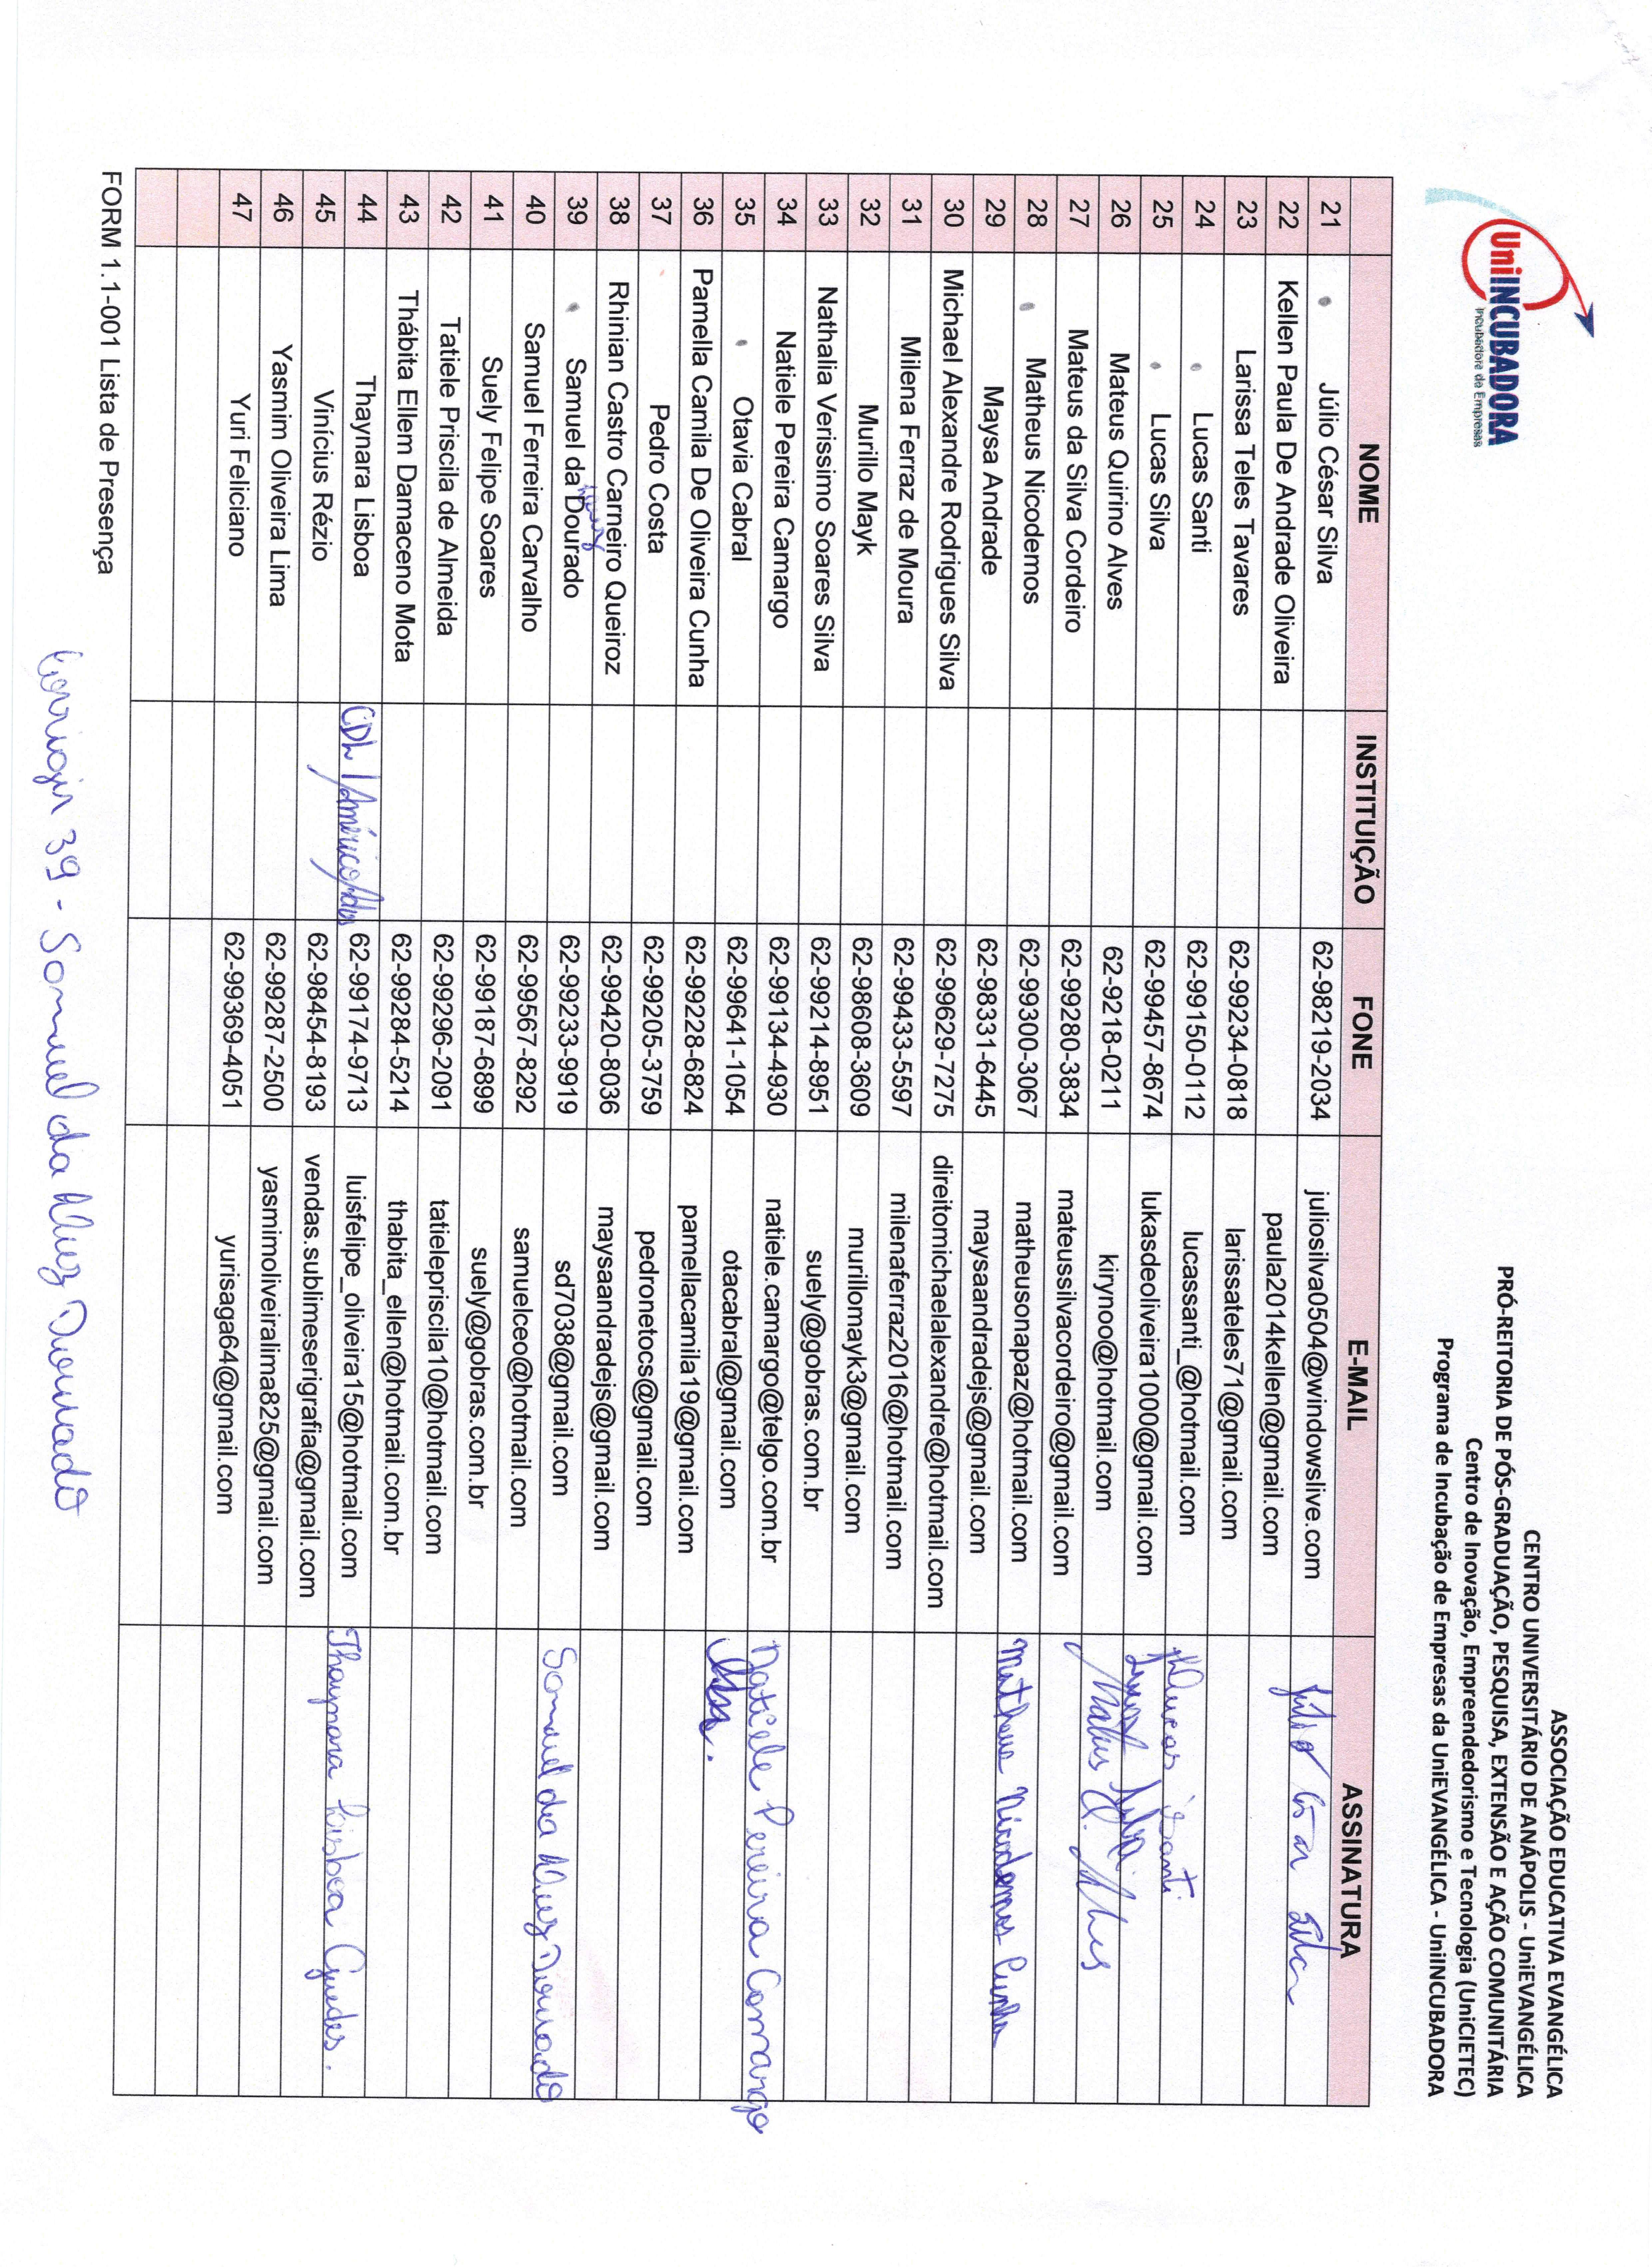 UniINCUBADORA
Incubadora de Empresas
ASSOCIAÇÃO EDUCATIVA EVANGÉLICA
CENTRO UNIVERSITÁRIO DE ANÁPOLIS - UniEVANGÉLICA
PRÓ-REITORIA DE PÓS-GRADUAÇÃO, PESQUISA, EXTENSÃO E AÇÃO COMUNITÁRIA
Centro de Inovação, Empreendedorismo e Tecnologia (UniCIETEC)
Programa de Incubação de Empresas da UniEVANGÉLICA - UniINCUBADORA
NOME INSTITUIÇÃO FONE E-MAIL ASSINATURA
21 Júlio César Silva 62-98219-2034 juliosilva0504@windowslive.com Júlio César Silva
22 Kellen Paula De Andrade Oliveira paula2014kellen@gmail.com
23 Larissa Teles Tavares 62-99234-0818 larissateles71@gmail.com
24 Lucas Santi 62-99150-0112 lucassanti_@hotmail.com Lucas Santi
25 Lucas Silva 62-99457-8674 lukasdeoliveira1000@gmail.com Lucas Silva
26 Mateus Quirino Alves 62-9218-0211 kirynoo@hotmail.com Mateus Q. Alves
27 Mateus da Silva Cordeiro 62-99280-3834 mateussilvacordeiro@gmail.com
28 Matheus Nicodemos 62-99300-3067 matheusonapaz@hotmail.com Matheus Nicodemos Cunha
29 Maysa Andrade 62-98331-6445 maysaandradejs@gmail.com
30 Michael Alexandre Rodrigues Silva 62-99629-7275 direitomichaelalexandre@hotmail.com
31 Milena Ferraz de Moura 62-99433-5597 milenaferraz2016@hotmail.com
32 Murillo Mayk 62-98608-3609 murillomayk3@gmail.com
33 Nathalia Verissimo Soares Silva 62-99214-8951 suely@gobras.com.br
34 Natiele Pereira Camargo 62-99134-4930 natiele.camargo@telgo.com.br Natiele Pereira Camargo
35 Otavia Cabral 62-99641-1054 otacabral@gmail.com
36 Pamella Camila De Oliveira Cunha 62-99228-6824 pamellacamila19@gmail.com
37 Pedro Costa 62-99205-3759 pedronetocs@gmail.com
38 Rhinian Castro Carneiro Queiroz 62-99420-8036 maysaandradejs@gmail.com
39 Samuel da Dourado 62-99233-9919 sd7038@gmail.com Samuel da Luz Dourado
40 Samuel Ferreira Carvalho 62-99567-8292 samuelceo@hotmail.com
41 Suely Felipe Soares 62-99187-6899 suely@gobras.com.br
42 Tatiele Priscila de Almeida 62-99296-2091 tatielepriscila10@hotmail.com
43 Thábita Ellem Damaceno Mota 62-99284-5214 thabita_ellen@hotmail.com.br
44 Thaynara Lisboa CDL / 62-99174-9713 luisfelipe_oliveira15@hotmail.com Thaynara Lisboa Guedes.
45 Vinícius Rézio 62-98454-8193 vendas.sublimeserigrafia@gmail.com
46 Yasmim Oliveira Lima 62-99287-2500 yasmimoliveiralima825@gmail.com
47 Yuri Feliciano 62-99369-4051 yurisaga64@gmail.com
FORM 1.1-001 Lista de Presença
Corrigir 39 - Samuel da Luz Dourado